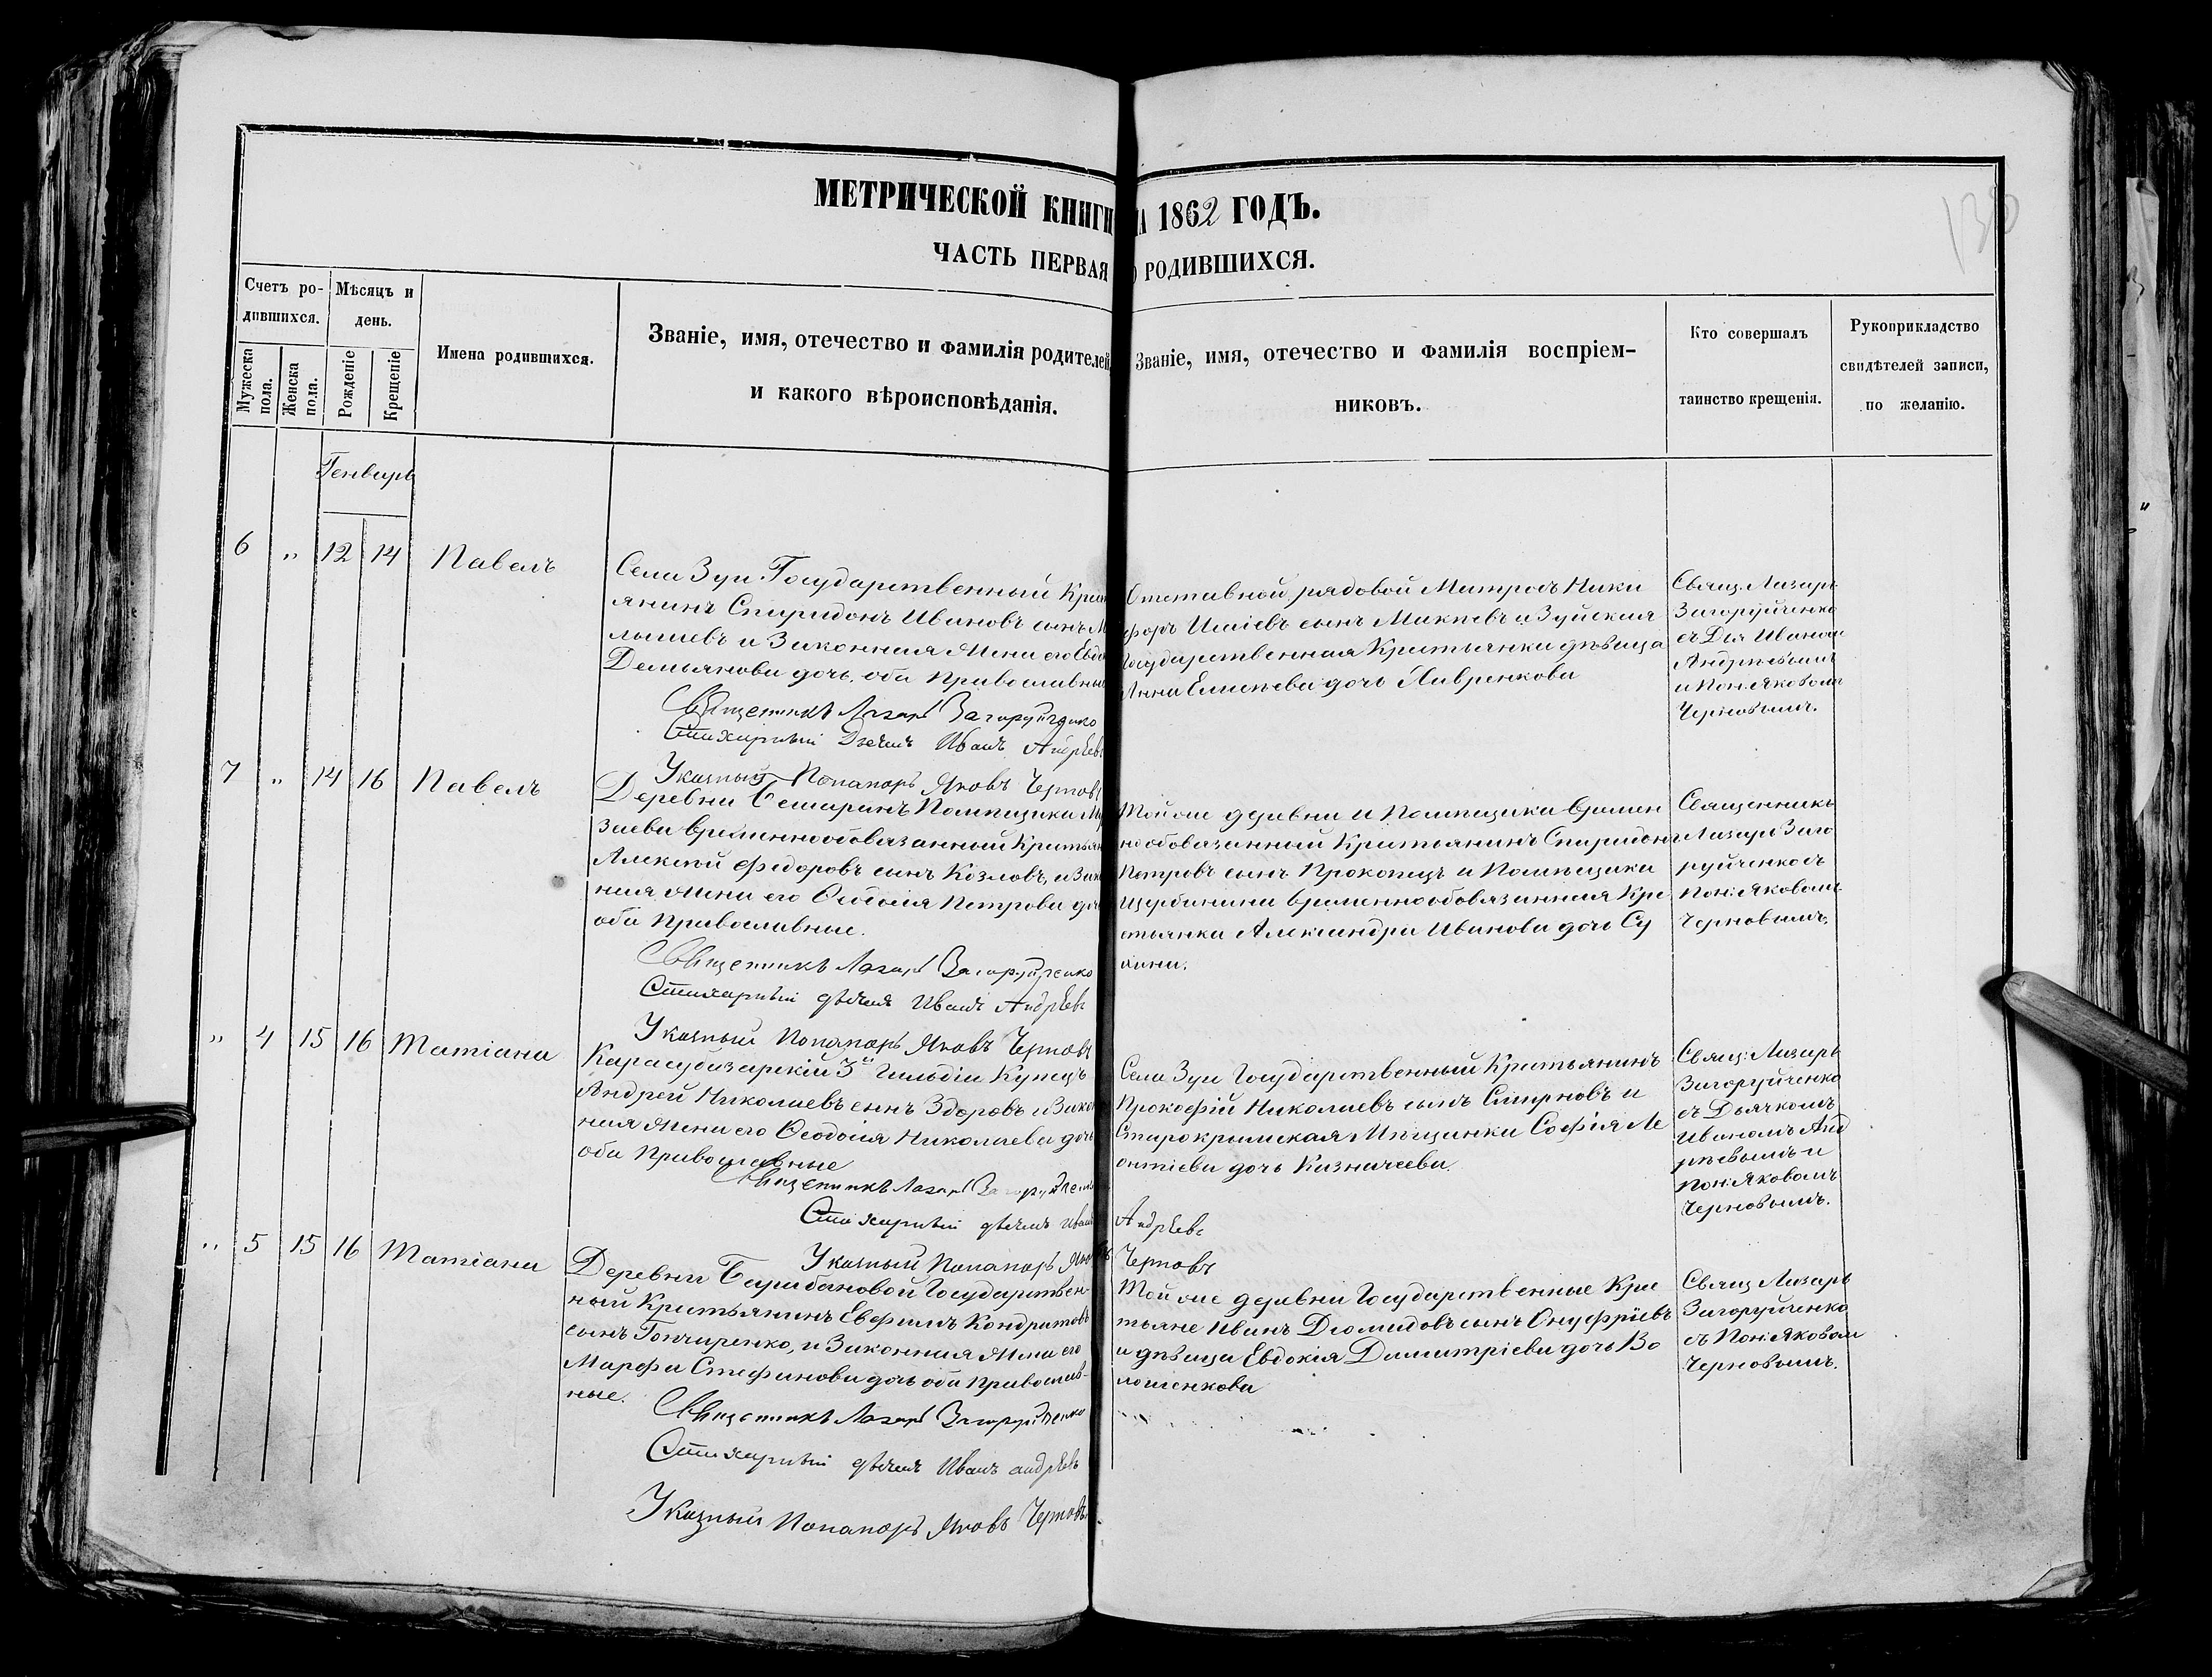 МЕТРИЧЕСКОЙ КНИГИ НА 1862 ГОДЪ.
ЧАСТЬ ПЕРВАЯ О РОДИВШИХСЯ.
Счетъ ро-
дившихся.
Мужеска пола.
Женска пола.
Мѣсяцъ и
день.
Рожденіе
Крещеніе
Имена родившихся.
Званіе, имя, отечество и фамилія родителей
и какого вѣроисповѣданія.
Званіе, имя, отечество и фамилія воспріем-
никовъ.
Кто совершалъ
таинство крещенія.
Рукоприкладство
свидѣтелей записи,
по желанію.
Генварь
6 „ 12 14 Павелъ
Села Зуи Государственный Крест
янинъ Спиридонъ Ивановъ сынъ
и Законная Жена его
Демьянова дочь, оба Православные
Священникъ Лазарь Загоруйченко
Стихарный Дьячекъ Иванъ Андрѣевъ
Указный Понамарь Яковъ Черновъ
Отставной рядовой Матросъ Ники
форъ сынъ и Зуйская
Государственная Крестьянка дѣвица
Анна Елисѣева дочь Лавренкова
Свящ. Лазарь
Загоруйченко
съ Дья. Иваномъ
Андрѣевымъ
и Пон. Яковомъ
Черновымъ.
7 „ 14 16 Павелъ
Деревни Бешаранъ Помѣщика
временнообовязанный Крестьян
Алексѣй Федоровъ сынъ Козловъ, и Зако
ная Жена его Ѳеодосія Петрова дочь
оба Православные.
Священникъ Лазарь Загоруйченко
Стихарный дьячекъ Иванъ Андрѣевъ
Указный Понамарь Яковъ Черновъ
Той же деревни и Помѣщика времен
нообовязанный Крестьянинъ Спиридонъ
Петровъ сынъ Прокопецъ и Помѣщика
Щербинина временнообовязанная Кре
стьянка Александра Иванова дочь Су
хина.
Священникъ
Лазарь Заго
руйченко съ
Пон. Яковомъ
Черновымъ.
„ 4 15 16 Татіана
Карасубазарскій 3й Гильдіи Купецъ
Андрей Николаевъ сынъ Здоровъ и Закон
ная Жена его Ѳеодосія Николаева дочь
оба Православные
Священникъ Лазарь Загоруйченко
Стихарный дьячекъ Иванъ Андрѣевъ
Указный Понамарь Яковъ Черновъ
Села Зуи Государственный Крестьянинъ
Прокофій Николаевъ сынъ Смирновъ и
Старокрымская Мѣщанка Софія Ле
онтіева дочь Казначеева.
Свящ. Лазарь
Загоруйченко
съ Дьячкомъ
Иваномъ Анд
рѣевымъ и
Пон. Яковомъ
Черновымъ.
„ 5 15 16 Татіана
Деревни Барабановой Государствен-
ный Крестьянинъ Евфимъ Кондратовъ
сынъ Гончаренко, и Законная Жена его
Марфа Стефанова дочь оба Православ-
ные.
Священникъ Лазарь Загоруйченко
Стихарный дьячекъ Иванъ Андрѣевъ
Указный Понамарь Яковъ Черновъ.
Той же деревни Государственные Кре
стьяне Иванъ Дюмидовъ сынъ Онуфріевъ
и дѣвица Евдокія Димитріева дочь Во
лошенкова
Свящ. Лазарь
Загоруйченко
съ Пон. Яковом
Черновымъ.